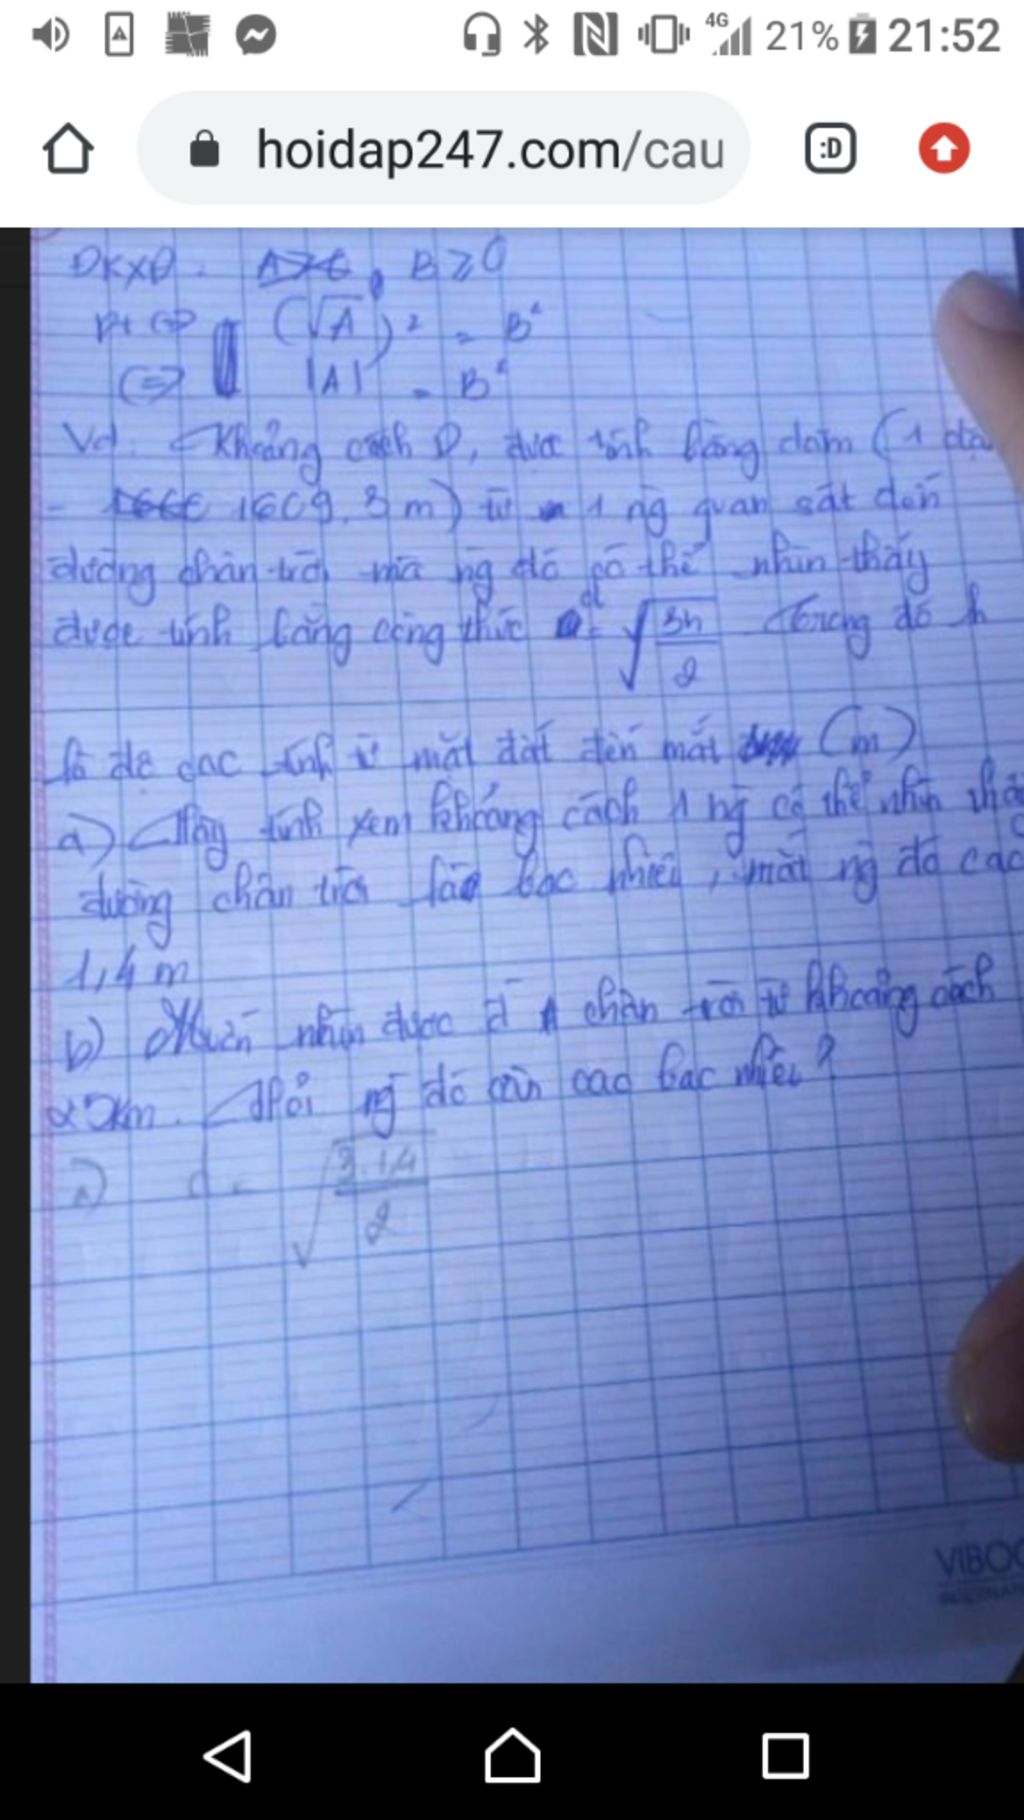 4G 21% 21:52
hoidap247.com/cau :D
ĐKXĐ: B ≥ 0
pt <=> (√A)² = B²
<=> |A| = B²
Vd: Khoảng cách D, đưa tính bằng dặm (1 dặ
= 1609.3 m) từ 1 ng quan sát đến
đường chân trời mà ng đó có thể nhìn thấy
được tính bằng công thức d = √(3h/2) Trong đó h
là độ cao tính từ mặt đất đến mắt (m)
a) Hãy tính xem khoảng cách 1 ng có thể nhìn thấ
đường chân trời là bao nhiêu, mắt ng đó cao
1,4 m
b) Muốn nhìn được đ chân trời từ khoảng cách
25km. Hỏi ng đó cần cao bao nhiêu?
a) d = √(3.1,4/2)
VIBOO